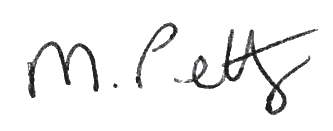 M. Petty